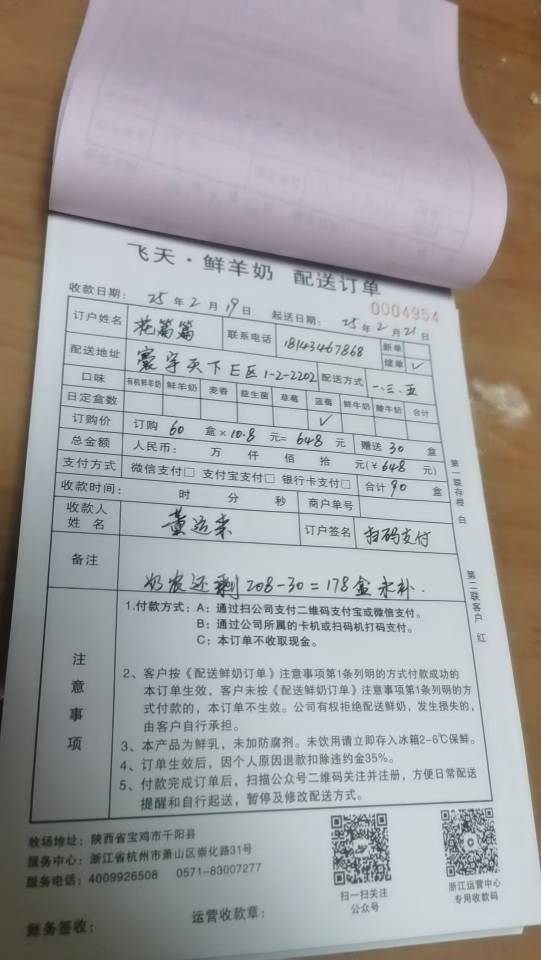 飞天·鲜羊奶 配送订单
收款日期： 25 年 2 月 19 日 起送日期： 25 年 2 月 21 日
0004954
订户姓名 花篇篇 联系电话 18143467868 新单
续单 ✓
配送地址 寰宇天下E区1-2-2202 配送方式 一、三、五
口味 有机鲜羊奶 鲜羊奶 麦香 益生菌 草莓 蓝莓 鲜牛奶 酸牛奶 合计
日定盒数 ✓
订购价 订购 60 盒×10.8 元= 648 元 赠送 30 盒
总金额 人民币： 万 仟 佰 拾 元(¥ 648 元)
支付方式 微信支付□ 支付宝支付□ 银行卡支付□ 合计 90 盒
收款时间： 时 分 秒 商户单号
收款人姓名 黄运来 订户签名 扫码支付
备注 奶农还剩208-30=178盒未补.
第一联存根 白
第二联客户 红
注意事项
1.付款方式：A：通过扫公司支付二维码支付宝或微信支付。
B：通过公司所属的卡机或扫码机打码支付。
C：本订单不收取现金。
2、客户按《配送鲜奶订单》注意事项第1条列明的方式付款成功的
本订单生效，客户未按《配送鲜奶订单》注意事项第1条列明的方
式付款的，本订单不生效。公司有权拒绝配送鲜奶，发生损失的，
由客户自行承担。
3、本产品为鲜乳，未加防腐剂。未饮用请立即存入冰箱2-6℃保鲜。
4、订单生效后，因个人原因退款扣除违约金35%。
5、付款完成订单后，扫描公众号二维码关注并注册，方便日常配送
提醒和自行起送，暂停及修改配送方式。
牧场地址：陕西省宝鸡市千阳县
服务中心：浙江省杭州市萧山区崇化路31号
服务电话：4009926508 0571-83007277
扫一扫关注
公众号
浙江运营中心
专用收款码
账务签收： 运营收款章：